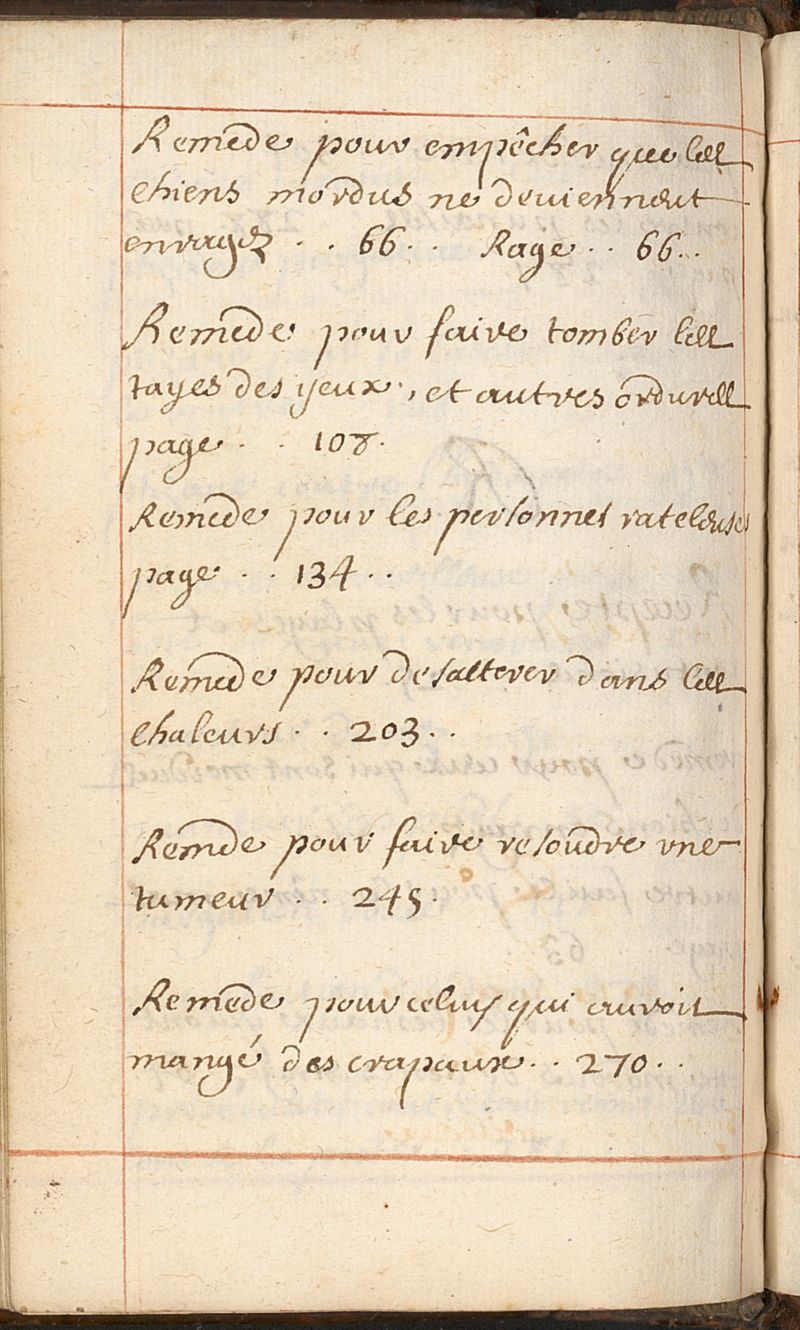 Remede pour empêcher que les
chiens mordus ne deviennent
enragez . . 66 . . Rage . . 66 . .
Remede pour faire tomber les
tayes des yeux, et autres ordures
page . . 108 .
Remede pour les personnes rateleuses
page . . 134 . .
Remede pour desalterer dans les
chaleurs . . 203 . .
Remede pour faire resoudre vne
tumeur . . 245 .
Remede pour celuy qui auroit
mangé des crapaux . . 270 . .